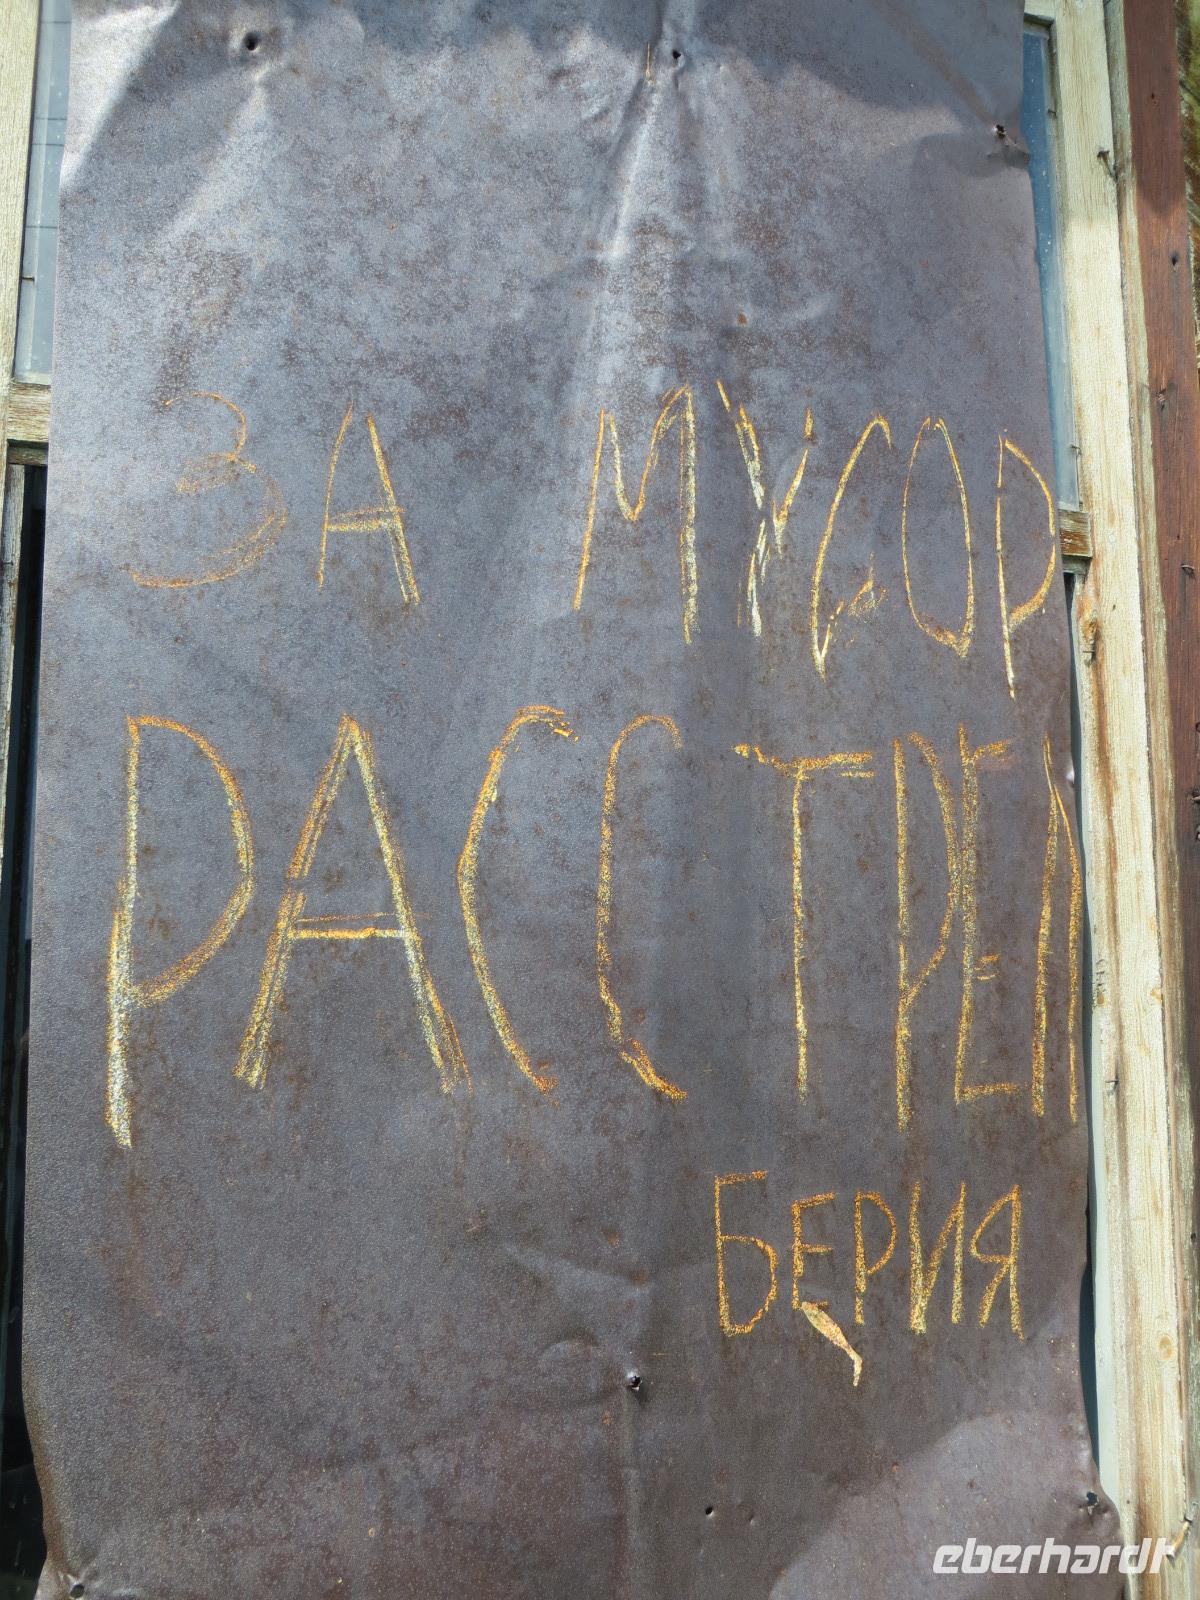 ЗА МУСОР
РАССТРЕЛ
БЕРИЯ
eberhardt